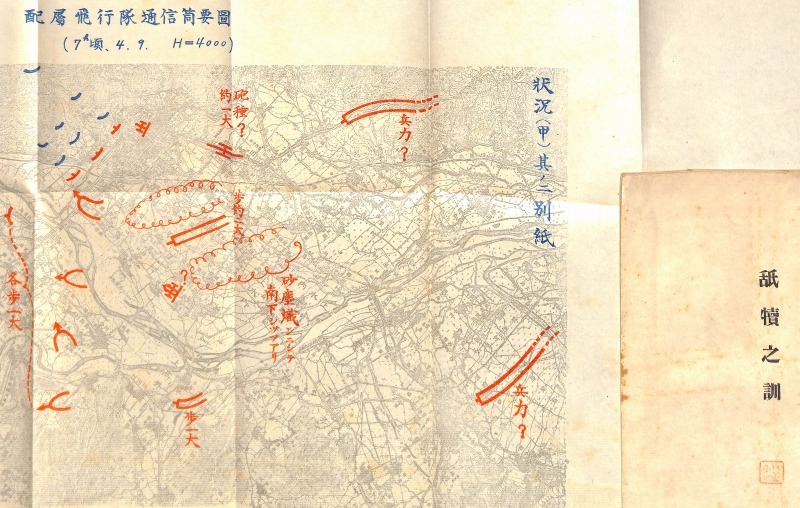 配属飛行隊通信筒要圖
(7ʰ頃、4.9. H=4000)
狀況(甲)其ノ二別紙
砲種?
約一大
兵力?
歩約一大
砲?
砂塵熾ンニシテ
南下シツツアリ
各歩一大
歩一大
兵力?
舐犢之訓